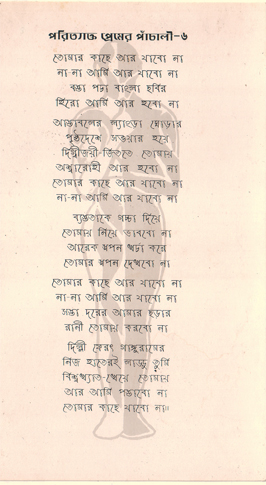 পরিত্যক্ত প্রেমের পাঁচালী-৬
তোমার কাছে আর যাবো না
না-না আমি আর যাবো না
বস্তা পচা বাংলা ছবির
হিরো আমি আর হবো না
আস্তাবলের ল্যাংড়া ঘোড়ার
পৃষ্ঠদেশে সওয়ার হয়ে
দিগ্বিজয়ী-জিততে তোমায়
অশ্বারোহী আর হবো না
তোমার কাছে আর যাবো না
না-না আমি আর যাবো না
ব্যস্ততাকে ধাক্কা দিয়ে
তোমায় নিয়ে ভাববো না
আরেক স্বপন খাটা করে
তোমার স্বপন দেখবো না
তোমার কাছে আর যাবো না
না-না আমি আর যাবো না
সস্তা দরের আমার ছড়ার
রানী তোমায় করবো না
দিল্লী ফেরৎ গঙ্গারামের
নিজ হাতেরই লাড্ডু তুমি
বিশ্বখ্যাত-খেয়ে তোমায়
আর আমি পস্তাবো না
তোমার কাছে যাবো না॥